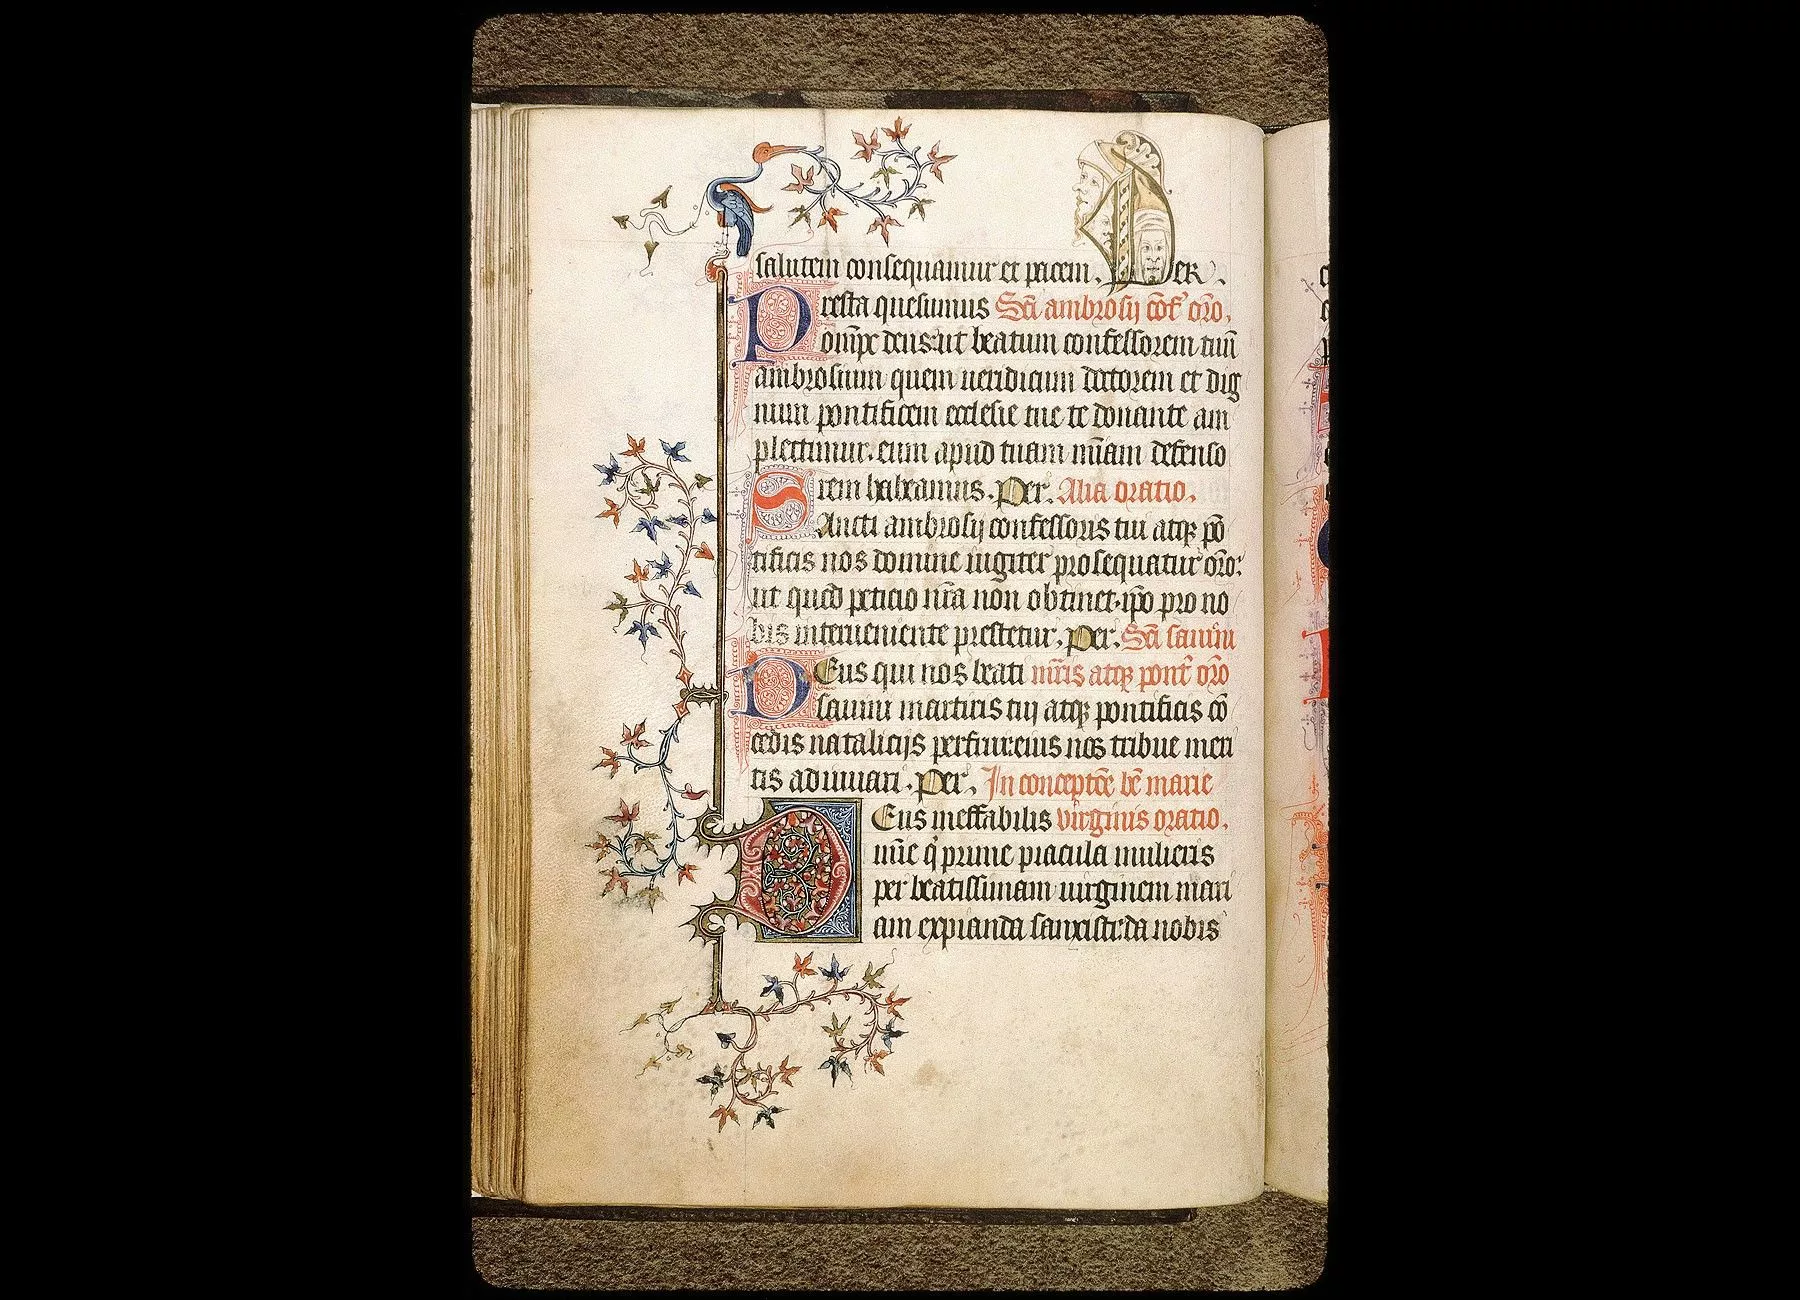 salutem consequamur et pacem. PER.
Presta quesumus Sc̄i ambrosij cōf' or̄o.
om̅ps deus: ut beatum confessorem tuū
ambrosium quem ueridicum doctorem et dig
num pontificem ecclesie tue te donante am
plectimur. eum apud tuam m̅iam defenso
rem habeamus. Per. Alia oratio.
SAncti ambrosij confessoris tui atqꝫ pō
tificis nos domine iugiter prosequatur or̄o:
ut quod peticio nr̄a non obtinet. ip̄o pro no
bis interueniente prestetur. Per. Sc̄i sauini
DEus qui nos beati mr̄is atqꝫ pont' or̄o
sauini martiris tui atqꝫ pontificis cō
cedis natalicijs perfrui: eius nos tribue meri
tis adiuuari. Per. In concepcōe bē marie
DEus ineffabilis uirginis oratio.
mīe q̄ prime piacula mulieris
per beatissimam uirginem mari
am expianda sanxisti: da nobis